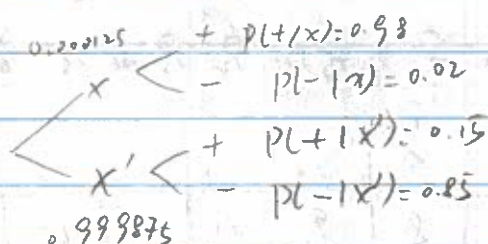 0.000125
+ P(+|x)=0.98
x
- P(-|x)=0.02
+ P(+|x')=0.15
x'
- P(-|x')=0.85
0.999875